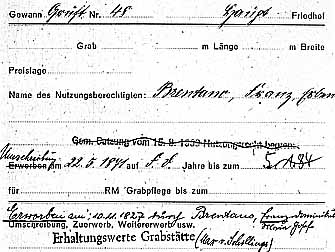 Gewann Gruft Nr. 48 Haupt Friedhof
Grab m Länge m Breite
Preislage
Name des Nutzungsberechtigten: Brentano, Franz
Gem. Satzung vom 15. 9. 1959 Nutzungsrecht begann:
Umschreibung
Erworben am 22. 5. 1841 auf Jahre bis zum
für RM Grabpflege bis zum
Erworben am: 10.11.1827 durch Brentano,
Umschreibung, Zuerwerb, Weitererwerb usw.
Erhaltungswerte Grabstätte